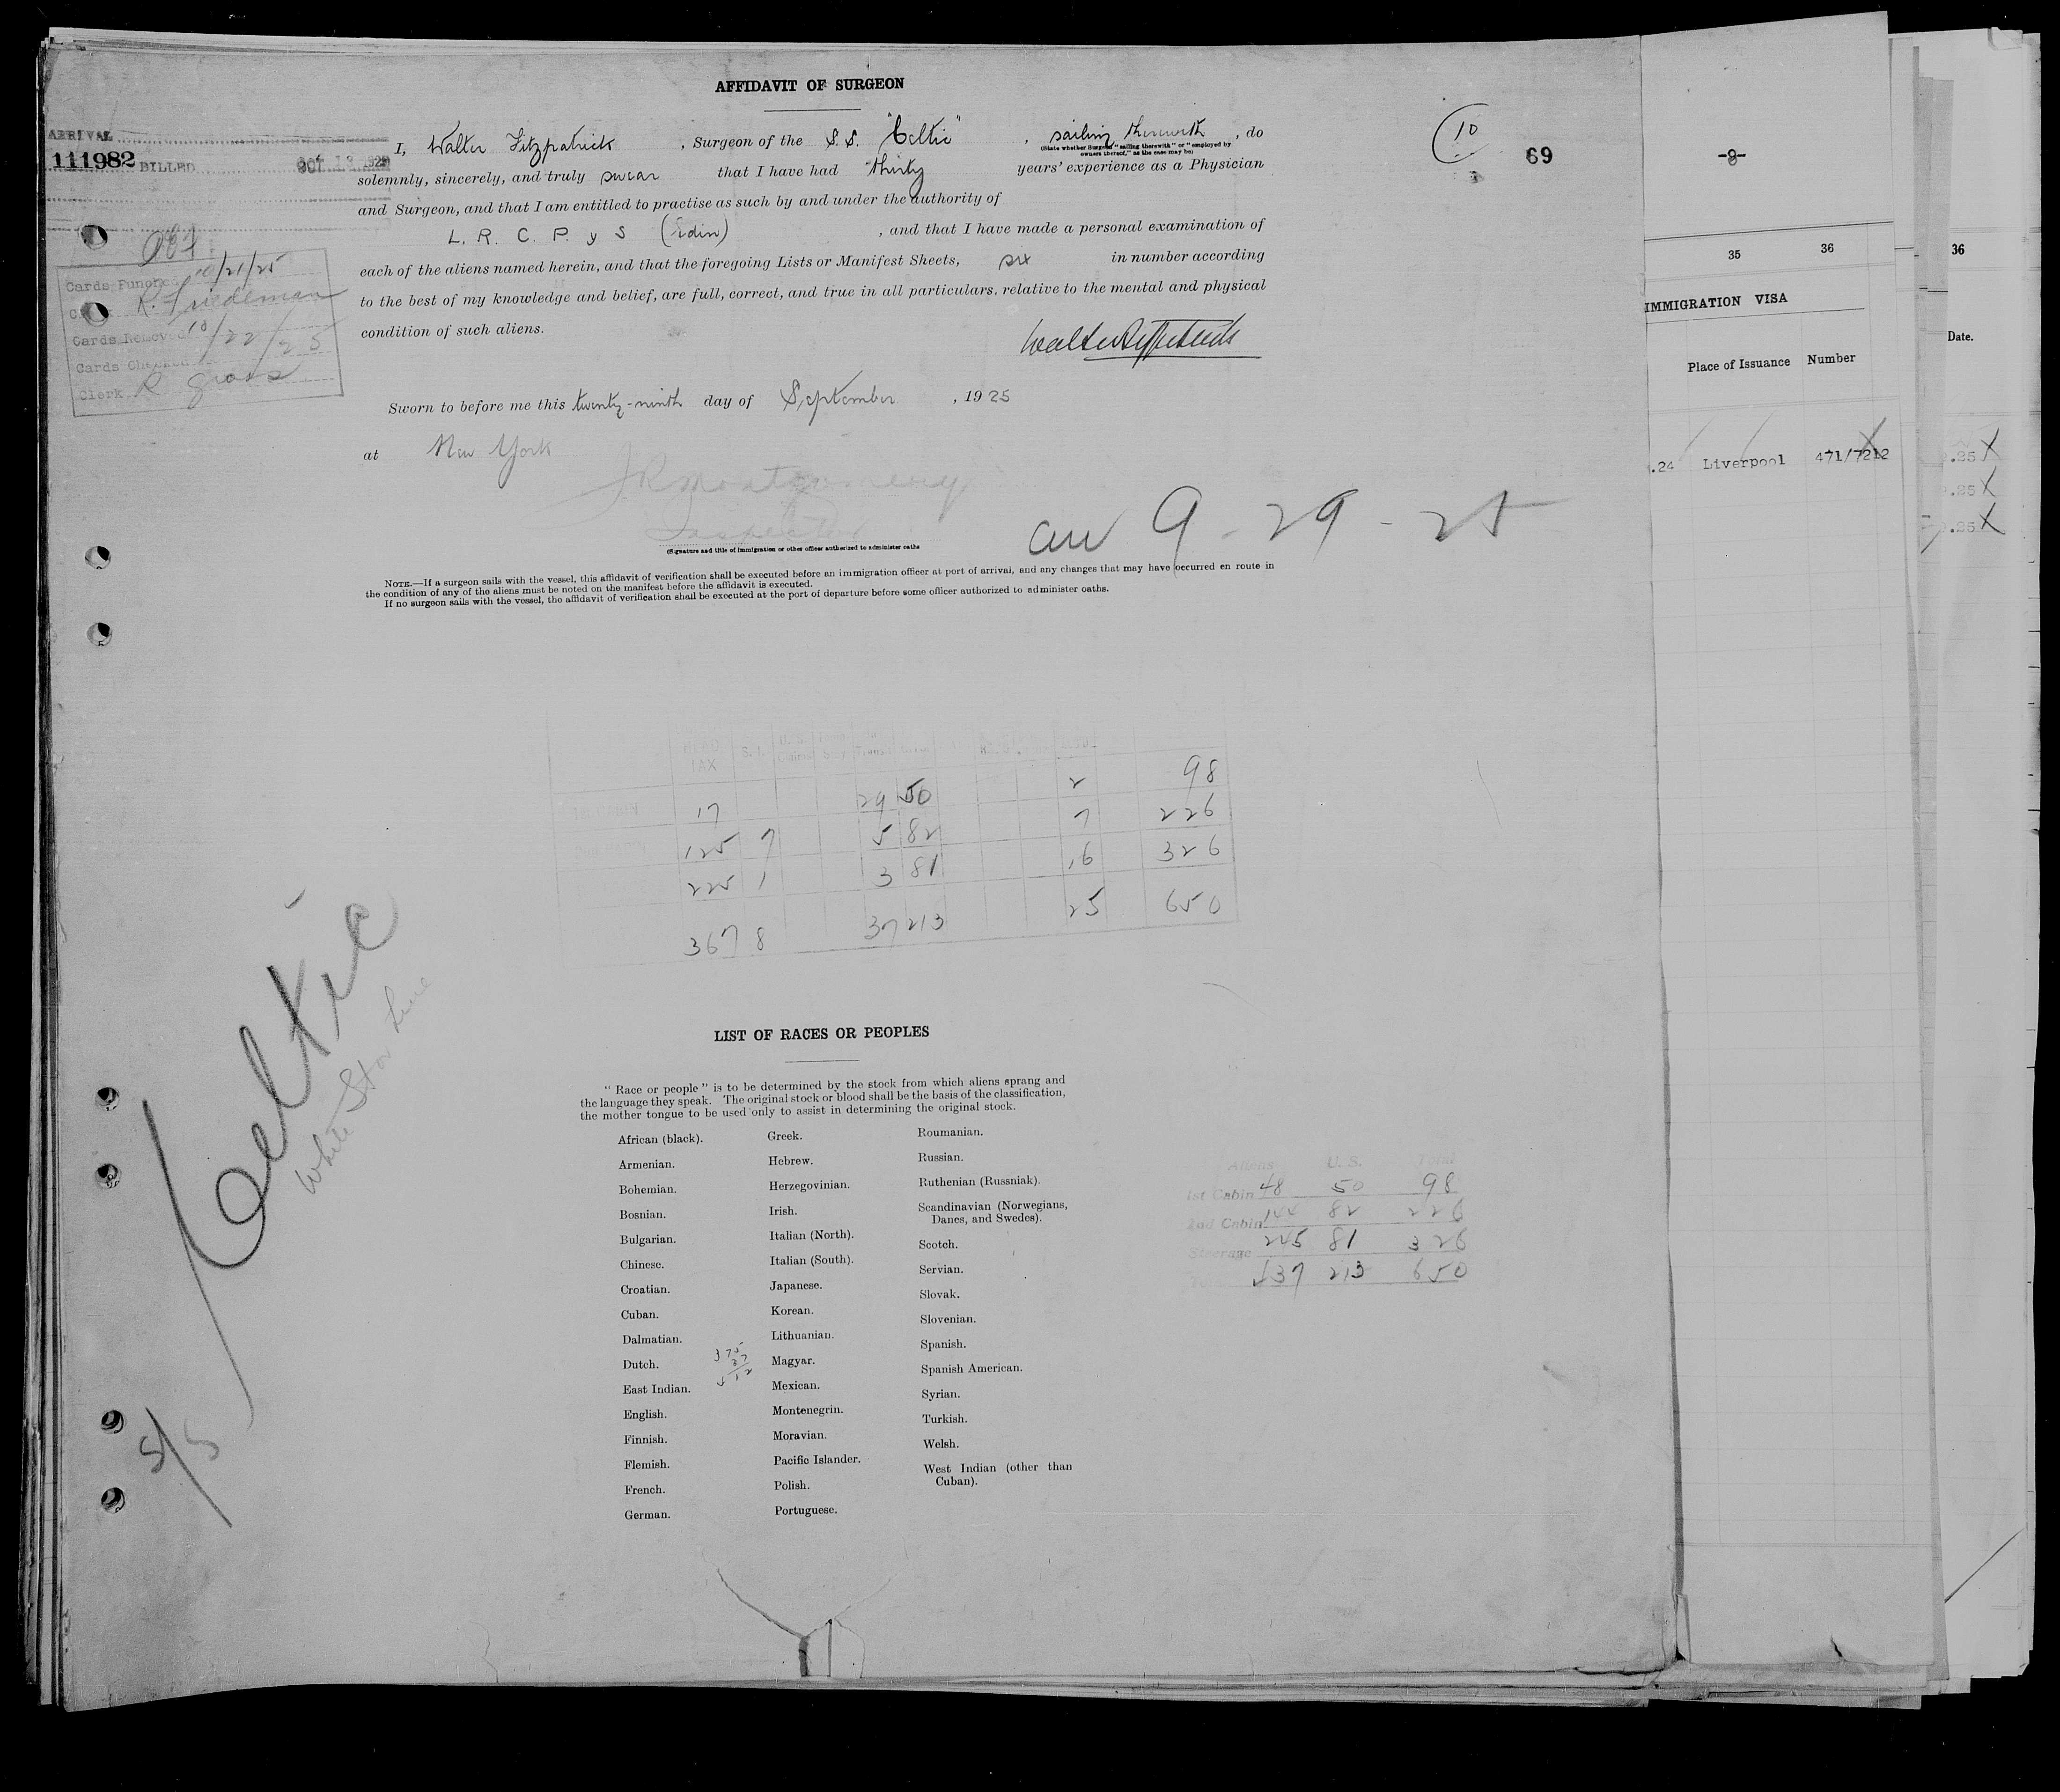 AFFIDAVIT OF SURGEON
ARRIVAL
111982 BILLED OCT 13 1925
I, Walter Fitzpatrick, Surgeon of the S.S. "Celtic", sailing therewith, do
(State whether Surgeon "sailing therewith" or "employed by
owners thereof," as the case may be)
solemnly, sincerely, and truly swear that I have had thirty years' experience as a Physician
and Surgeon, and that I am entitled to practise as such by and under the authority of
L. R. C. P. y S (Edin), and that I have made a personal examination of
each of the aliens named herein, and that the foregoing Lists or Manifest Sheets, six in number according
to the best of my knowledge and belief, are full, correct, and true in all particulars. relative to the mental and physical
condition of such aliens.
Sworn to before me this twenty-ninth day of September, 1925
at New York
J R Montgomery
Inspector
(Signature and title of immigration or other officer authorized to administer oaths
arr 9-29-25
NOTE.—If a surgeon sails with the vessel, this affidavit of verification shall be executed before an immigration officer at port of arrival, and any changes that may have occurred en route in
the condition of any of the aliens must be noted on the manifest before the affidavit is executed.
If no surgeon sails with the vessel, the affidavit of verification shall be executed at the port of departure before some officer authorized to administer oaths.
10
69
Cards Punched 10/21/25
R. Friedeman
Cards Removed 10/22/25
Cards Checked
Clerk R Gross
HEAD TAX S. I. U. S.
17 29 50 2 98
125 7 5 82 7 226
225 1 3 81 16 326
367 8 37 213 25 650
Celtic
White Star Line
S/S
LIST OF RACES OR PEOPLES
"Race or people" is to be determined by the stock from which aliens sprang and
the language they speak. The original stock or blood shall be the basis of the classification,
the mother tongue to be used only to assist in determining the original stock.
African (black).
Armenian.
Bohemian.
Bosnian.
Bulgarian.
Chinese.
Croatian.
Cuban.
Dalmatian.
Dutch.
East Indian.
English.
Finnish.
Flemish.
French.
German.
375
37
Greek.
Hebrew.
Herzegovinian.
Irish.
Italian (North).
Italian (South).
Japanese.
Korean.
Lithuanian.
Magyar.
Mexican.
Montenegrin.
Moravian.
Pacific Islander.
Polish.
Portuguese.
Roumanian.
Russian.
Ruthenian (Russniak).
Scandinavian (Norwegians,
Danes, and Swedes).
Scotch.
Servian.
Slovak.
Slovenian.
Spanish.
Spanish American.
Syrian.
Turkish.
Welsh.
West Indian (other than
Cuban).
Aliens U. S. Total
1st Cabin 48 50 98
2nd Cabin 144 82 226
Steerage 245 81 326
437 213 650
-8-
35 36
IMMIGRATION VISA
Place of Issuance Number
.24 Liverpool 471/7212
36
Date.
.25 X
.25 X
.25 X